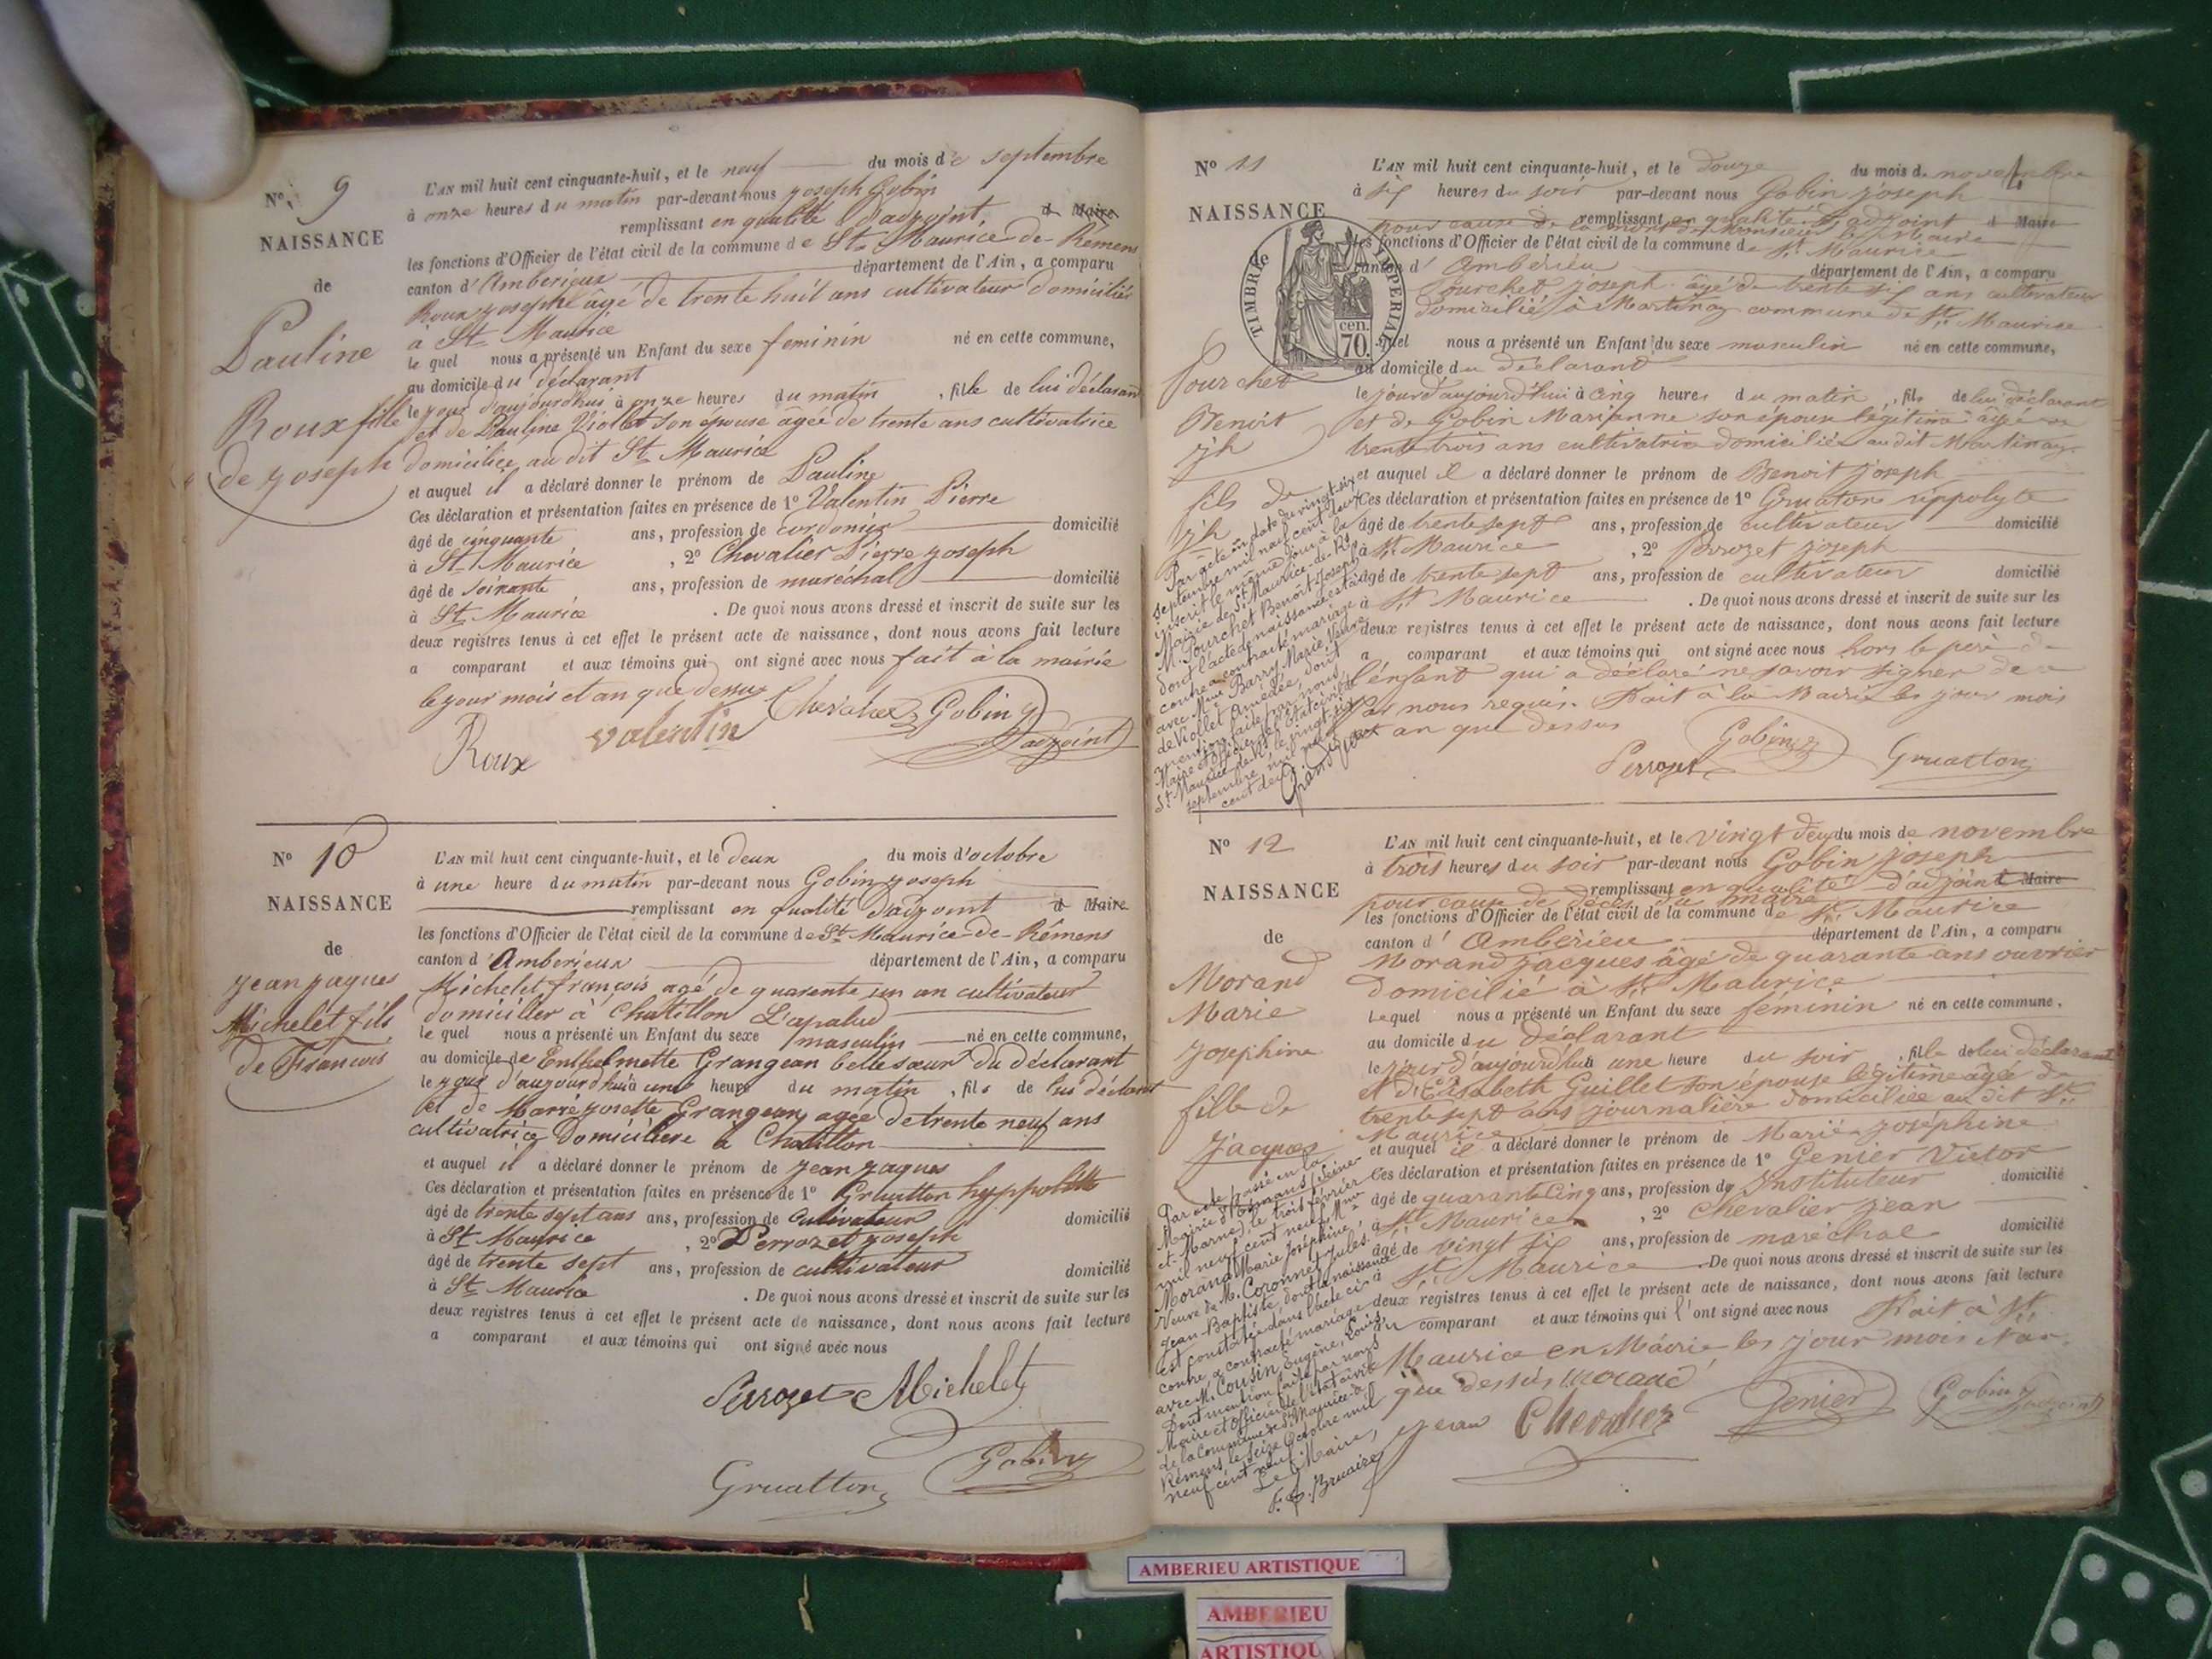 N° 9
NAISSANCE
de
Pauline
Roux fille
de Joseph
L'AN mil huit cent cinquante-huit, et le neuf du mois de septembre
à onze heures du matin par-devant nous Joseph Gobin
remplissant en qualité d'adjoint, d Maire
les fonctions d'Officier de l'état civil de la commune de St Maurice de Rémens
canton d'Amberieux département de l'Ain, a comparu
Roux Joseph agé de trente huit ans cultivateur domicilié
à St Maurice
le quel nous a présenté un Enfant du sexe feminin né en cette commune,
au domicile du déclarant
le jour d'aujourdhui à onze heures du matin, fille de lui déclarant
et de Pauline Viollet son épouse âgée de trente ans cultivatrice
domiciliée au dit St Maurice
et auquel il a déclaré donner le prénom de Pauline
Ces déclaration et présentation faites en présence de 1° Valentin Pierre
âgé de cinquante ans, profession de cordonier domicilié
à St Maurice, 2° Chevalier Pierre Joseph
âgé de soixante ans, profession de maréchal domicilié
à St Maurice. De quoi nous avons dressé et inscrit de suite sur les
deux registres tenus à cet effet le présent acte de naissance, dont nous avons fait lecture
a comparant et aux témoins qui ont signé avec nous fait à la mairie
le jour mois et an que dessus
Chevalier Gobin
adjoint
Roux Valentin
N° 10
NAISSANCE
de
Jean Jaques
Michelet fils
de Francois
L'AN mil huit cent cinquante-huit, et le deux du mois d'octobre
à une heure du matin par-devant nous Gobin Joseph
remplissant en qualité d'adjoint d Maire
les fonctions d'Officier de l'état civil de la commune de St Maurice de Rémens
canton d'Amberieux département de l'Ain, a comparu
Michelet françois agé de quarente un an cultivateur
domiciller à Chatillon L'apalud
le quel nous a présenté un Enfant du sexe masculin né en cette commune,
au domicile de Grangean belle sœur du déclarant
le jour d'aujourdhui à une heure du matin, fils de lui déclarant
et de Marie Josette Grangean agée de trente neuf ans
cultivatrice domiciliere à Chatillon
et auquel il a déclaré donner le prénom de Jean Jaques
Ces déclaration et présentation faites en présence de 1° Gruatton hyppolitte
âgé de trente sept ans ans, profession de cultivateur domicilié
à St Maurice, 2° Perrozet Joseph
âgé de trente sept ans, profession de cultivateur domicilié
à St Maurice. De quoi nous avons dressé et inscrit de suite sur les
deux registres tenus à cet effet le présent acte de naissance, dont nous avons fait lecture
a comparant et aux témoins qui ont signé avec nous
Perrozet Michelet
Gruatton Gobin
N° 11
NAISSANCE
TIMBRE IMPERIAL
cen.
70.
Pourchet
Benoit
Jh
fils de
Jh
L'AN mil huit cent cinquante-huit, et le douze du mois de novembre
à six heures du soir par-devant nous Gobin Joseph
remplissant en qualité d'adjoint d Maire
pour cause de la mort de Monsieur le Maire
les fonctions d'Officier de l'état civil de la commune de St Maurice
canton d'Ambérieu département de l'Ain, a comparu
Pourchet Joseph âgé de trente six ans cultivateur
domicilié à Martinaz commune de St Maurice
quel nous a présenté un Enfant du sexe masculin né en cette commune,
au domicile du déclarant
le jour d'aujourd'hui à cinq heures du matin, fils de lui déclarant
et de Gobin Marianne son épouse légitime âgée de
trente trois ans cultivatrice domiciliée au dit Martinaz
et auquel il a déclaré donner le prénom de Benoit Joseph
Ces déclaration et présentation faites en présence de 1° Gruaton hippolyte
âgé de trente sept ans, profession de cultivateur domicilié
à St Maurice, 2° Perrozet Joseph
âgé de trente sept ans, profession de cultivateur domicilié
à St Maurice. De quoi nous avons dressé et inscrit de suite sur les
deux registres tenus à cet effet le présent acte de naissance, dont nous avons fait lecture
a comparant et aux témoins qui ont signé avec nous hors le père de
l'enfant qui a déclaré ne savoir signer de ce
par nous requis. Fait à la Mairie les jour mois
et an que dessus
Gobin
Perrozet Gruatton
Par acte en date du vingt-six
septembre mil neuf cent deux
inscrit le même jour à la
Mairie de St Maurice-de-Rs
M. Pourchet Benoit Joseph
dont l'acte de naissance est ci
contre a contracté mariage
avec Mme Barry Marie, Veuve
de Viollet Amédée, dont
mention faite par nous
Maire et officier de l'état civil de
St Maurice-de-Rs le vingt-six
septembre mil neuf
cent deux.
N° 12
NAISSANCE
de
Morand
Marie
Josephine
fille de
Jacques
L'AN mil huit cent cinquante-huit, et le vingt deux du mois de novembre
à trois heures du soir par-devant nous Gobin Joseph
remplissant en qualité d'adjoint Maire
pour cause de décès du maire
les fonctions d'Officier de l'état civil de la commune de St Maurice
canton d'Ambérieu département de l'Ain, a comparu
Morand Jacques âgé de quarante ans ouvrier
domicilié à St Maurice
Lequel nous a présenté un Enfant du sexe féminin né en cette commune,
au domicile du déclarant
le jour d'aujourd'hui à une heure du soir, fille de lui déclarant
et d'Elisabeth Guillet son épouse légitime âgée de
trente sept ans journalière domiciliée au dit St
Maurice
et auquel il a déclaré donner le prénom de Marie Joséphine
Ces déclaration et présentation faites en présence de 1° Genier Victor
âgé de quarante cinq ans, profession de Instituteur domicilié
à St Maurice, 2° Chevalier Jean
âgé de vingt six ans, profession de maréchal domicilié
St Maurice. De quoi nous avons dressé et inscrit de suite sur les
deux registres tenus à cet effet le présent acte de naissance, dont nous avons fait lecture
au comparant et aux témoins qui l'ont signé avec nous Fait à St
Maurice en Mairie les jour mois et an
que dessus Morand
Jean Chevalier Genier Gobin
adjoint
Par acte passé en la
Mairie d'Esmans (Seine-
et-Marne), le trois février
mil neuf cent neuf, Mme
Morand Marie Joséphine,
Veuve de M. Coronnet Jules
Jean-Baptiste, dont la naissance
est constatée dans l'acte ci-
contre, a contracté mariage
avec M. Cousin Eugène, Louis,
Dont mention faite par nous
Maire et officier de l'état civil
de la Commune de St Maurice-de-
Rémens, le seize Octobre mil
neuf cent neuf.
Le Maire,
AMBERIEU ARTISTIQUE
AMBERIEU
ARTISTIQU